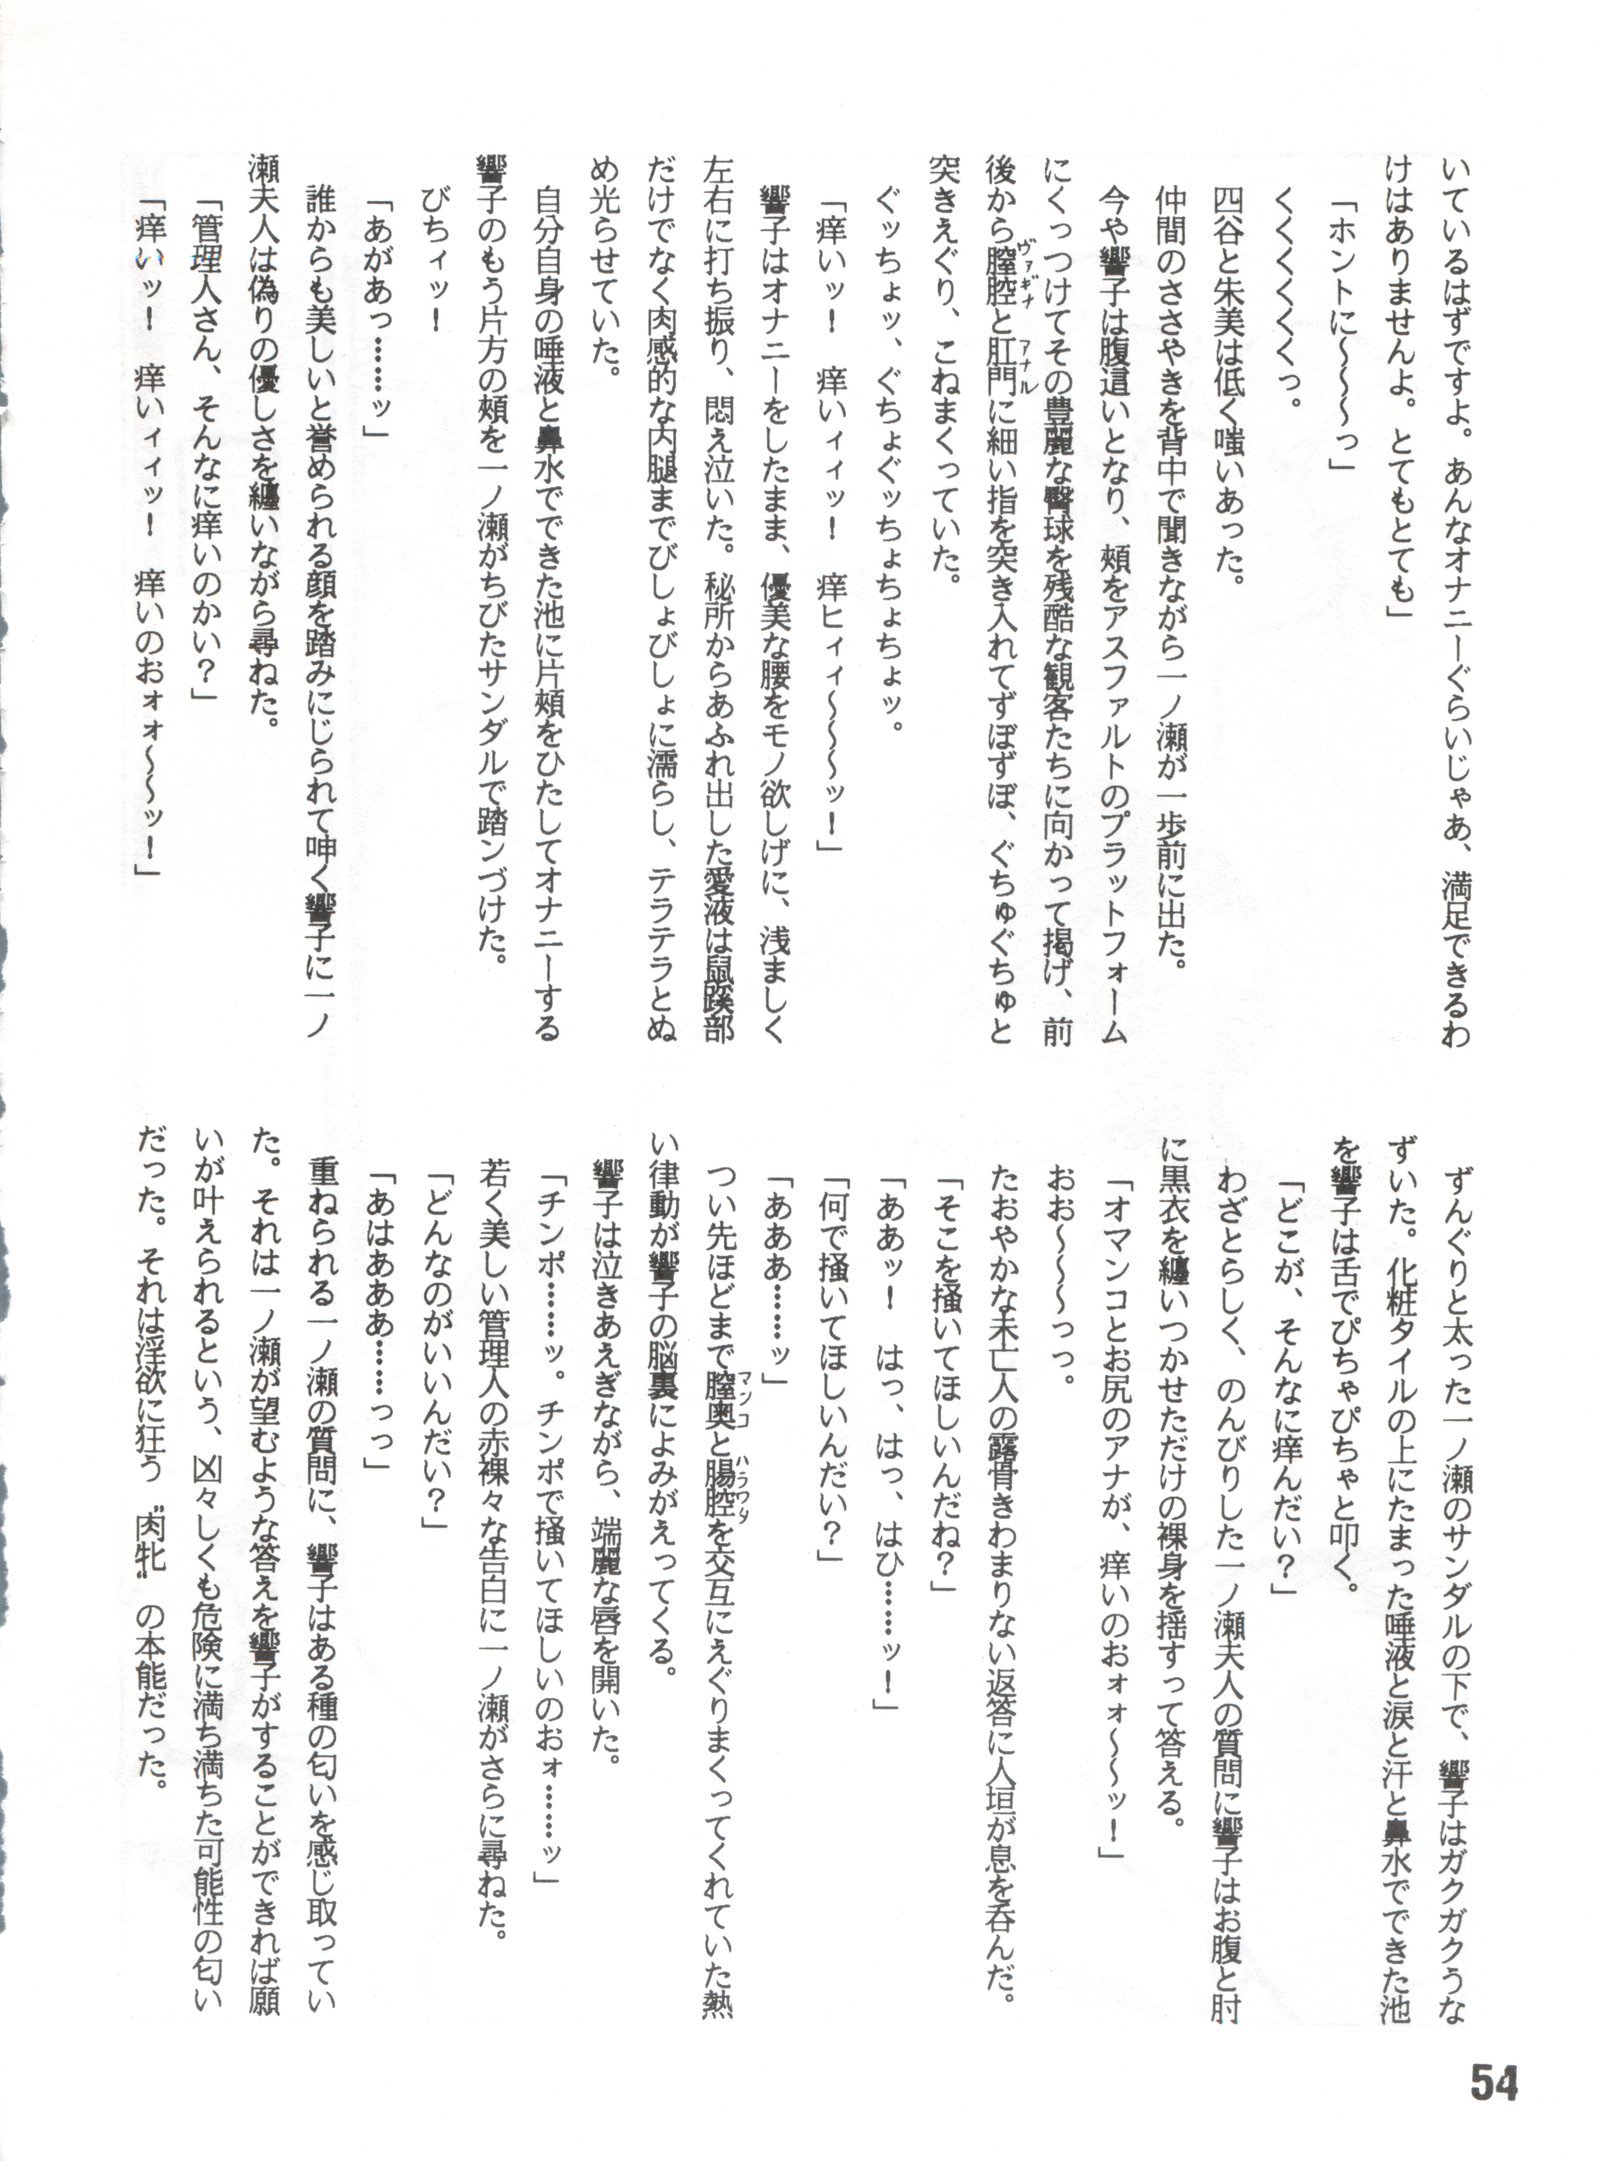 いているはずですよ。あんなオナニーぐらいじゃあ、満足できるわ
けはありませんよ。とてもとても」
「ホントに～～～っ」
くくくくくくっ。
四谷と朱美は低く嗤いあった。
仲間のささやきを背中で聞きながら一ノ瀬が一歩前に出た。
今や響子は腹這いとなり、頬をアスファルトのプラットフォーム
にくっつけてその豊麗な臀球を残酷な観客たちに向かって掲げ、前
後から膣腔と肛門に細い指を突き入れてずぽずぽ、ぐちゅぐちゅと
ヴァギナ
アナル
突きえぐり、こねまくっていた。
ぐッちょッ、ぐちょぐッちょちょちょッ。
「痒いッ！　痒いィィッ！　痒ヒィィ～～～ッ！」
響子はオナニーをしたまま、優美な腰をモノ欲しげに、浅ましく
左右に打ち振り、悶え泣いた。秘所からあふれ出した愛液は鼠蹊部
だけでなく肉感的な内腿までびしょびしょに濡らし、テラテラとぬ
め光らせていた。
自分自身の唾液と鼻水でできた池に片頬をひたしてオナニーする
響子のもう片方の頬を一ノ瀬がちびたサンダルで踏ンづけた。
びちィッ！
「あがあっ……ッ」
誰からも美しいと誉められる顔を踏みにじられて呻く響子に一ノ
瀬夫人は偽りの優しさを纏いながら尋ねた。
「管理人さん、そんなに痒いのかい？」
「痒いッ！　痒いィィッ！　痒いのおォォ～～ッ！」
ずんぐりと太った一ノ瀬のサンダルの下で、響子はガクガクうな
ずいた。化粧タイルの上にたまった唾液と涙と汗と鼻水でできた池
を響子は舌でぴちゃぴちゃと叩く。
「どこが、そんなに痒んだい？」
わざとらしく、のんびりした一ノ瀬夫人の質問に響子はお腹と肘
に黒衣を纏いつかせただけの裸身を揺すって答える。
「オマンコとお尻のアナが、痒いのおォォ～～ッ！」
おお～～～っっ。
たおやかな未亡人の露骨きわまりない返答に人垣が息を呑んだ。
「そこを掻いてほしいんだね？」
「ああッ！　はっ、はっ、はひ……ッ！」
「何で掻いてほしいんだい？」
「あああ……ッ」
つい先ほどまで膣奥と腸腔を交互にえぐりまくってくれていた熱
マンコ
ハラワタ
い律動が響子の脳裏によみがえってくる。
響子は泣きあえぎながら、端麗な唇を開いた。
「チンポ……ッ。チンポで掻いてほしいのおォ……ッ」
若く美しい管理人の赤裸々な告白に一ノ瀬がさらに尋ねた。
「どんなのがいいんだい？」
「あはあああ……っっ」
重ねられる一ノ瀬の質問に、響子はある種の匂いを感じ取ってい
た。それは一ノ瀬が望むような答えを響子がすることができれば願
いが叶えられるという、凶々しくも危険に満ち満ちた可能性の匂い
だった。それは淫欲に狂う〝肉牝〟の本能だった。
54